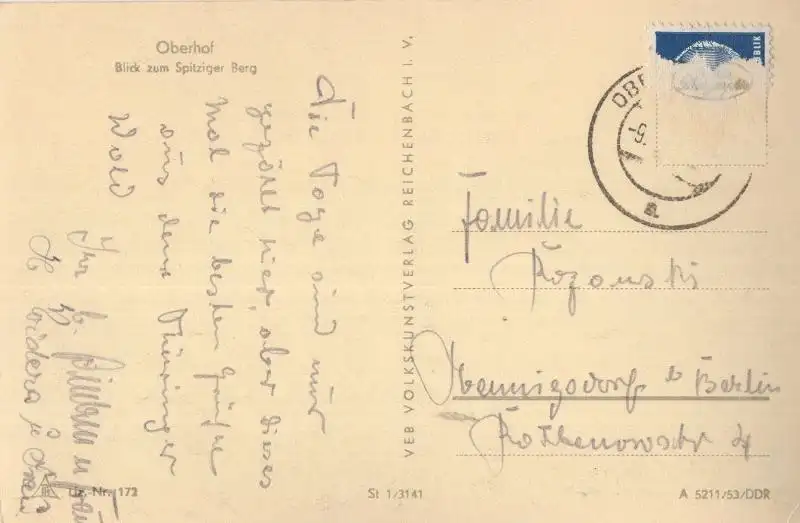 Oberhof
Blick zum Spitziger Berg
Die Tage sind nur
gezählt hier, aber dieses
Mal die besten Grüße
aus dem Thüringer
Wald
Ihr
u. Frau
H.
u. Frau
VEB VOLKSKUNSTVERLAG REICHENBACH I. V.
BLIK
OBE
-9.
a
Familie
Rozanski
Hennigsdorf b Berlin
Rathenowstr 4
Liz.-Nr. 172
St 1/3141
A 5211/53/DDR